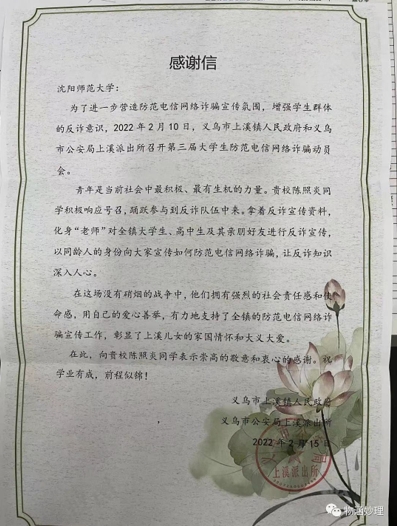 感谢信
沈阳师范大学：
为了进一步营造防范电信网络诈骗宣传氛围，增强学生群体
的反诈意识，2022年2月10日，义乌市上溪镇人民政府和义乌
市公安局上溪派出所召开第三届大学生防范电信网络诈骗动员
会。
青年是当前社会中最积极、最有生机的力量。贵校陈照炎同
学积极响应号召，踊跃参与到反诈队伍中来。拿着反诈宣传资料，
化身“老师”对全镇大学生、高中生及其亲朋好友进行反诈宣传，
以同龄人的身份向大家宣传如何防范电信网络诈骗，让反诈知识
深入人心。
在这场没有硝烟的战争中，他们拥有强烈的社会责任感和使
命感，用自己的爱心善举，有力地支持了全镇的防范电信网络诈
骗宣传工作，彰显了上溪儿女的家国情怀和大义大爱。
在此，向贵校陈照炎同学表示崇高的敬意和衷心的感谢。祝
学业有成，前程似锦！
义乌市上溪镇人民政府
义乌市公安局上溪派出所
2022年2月15日
上溪派出所
物语妙理